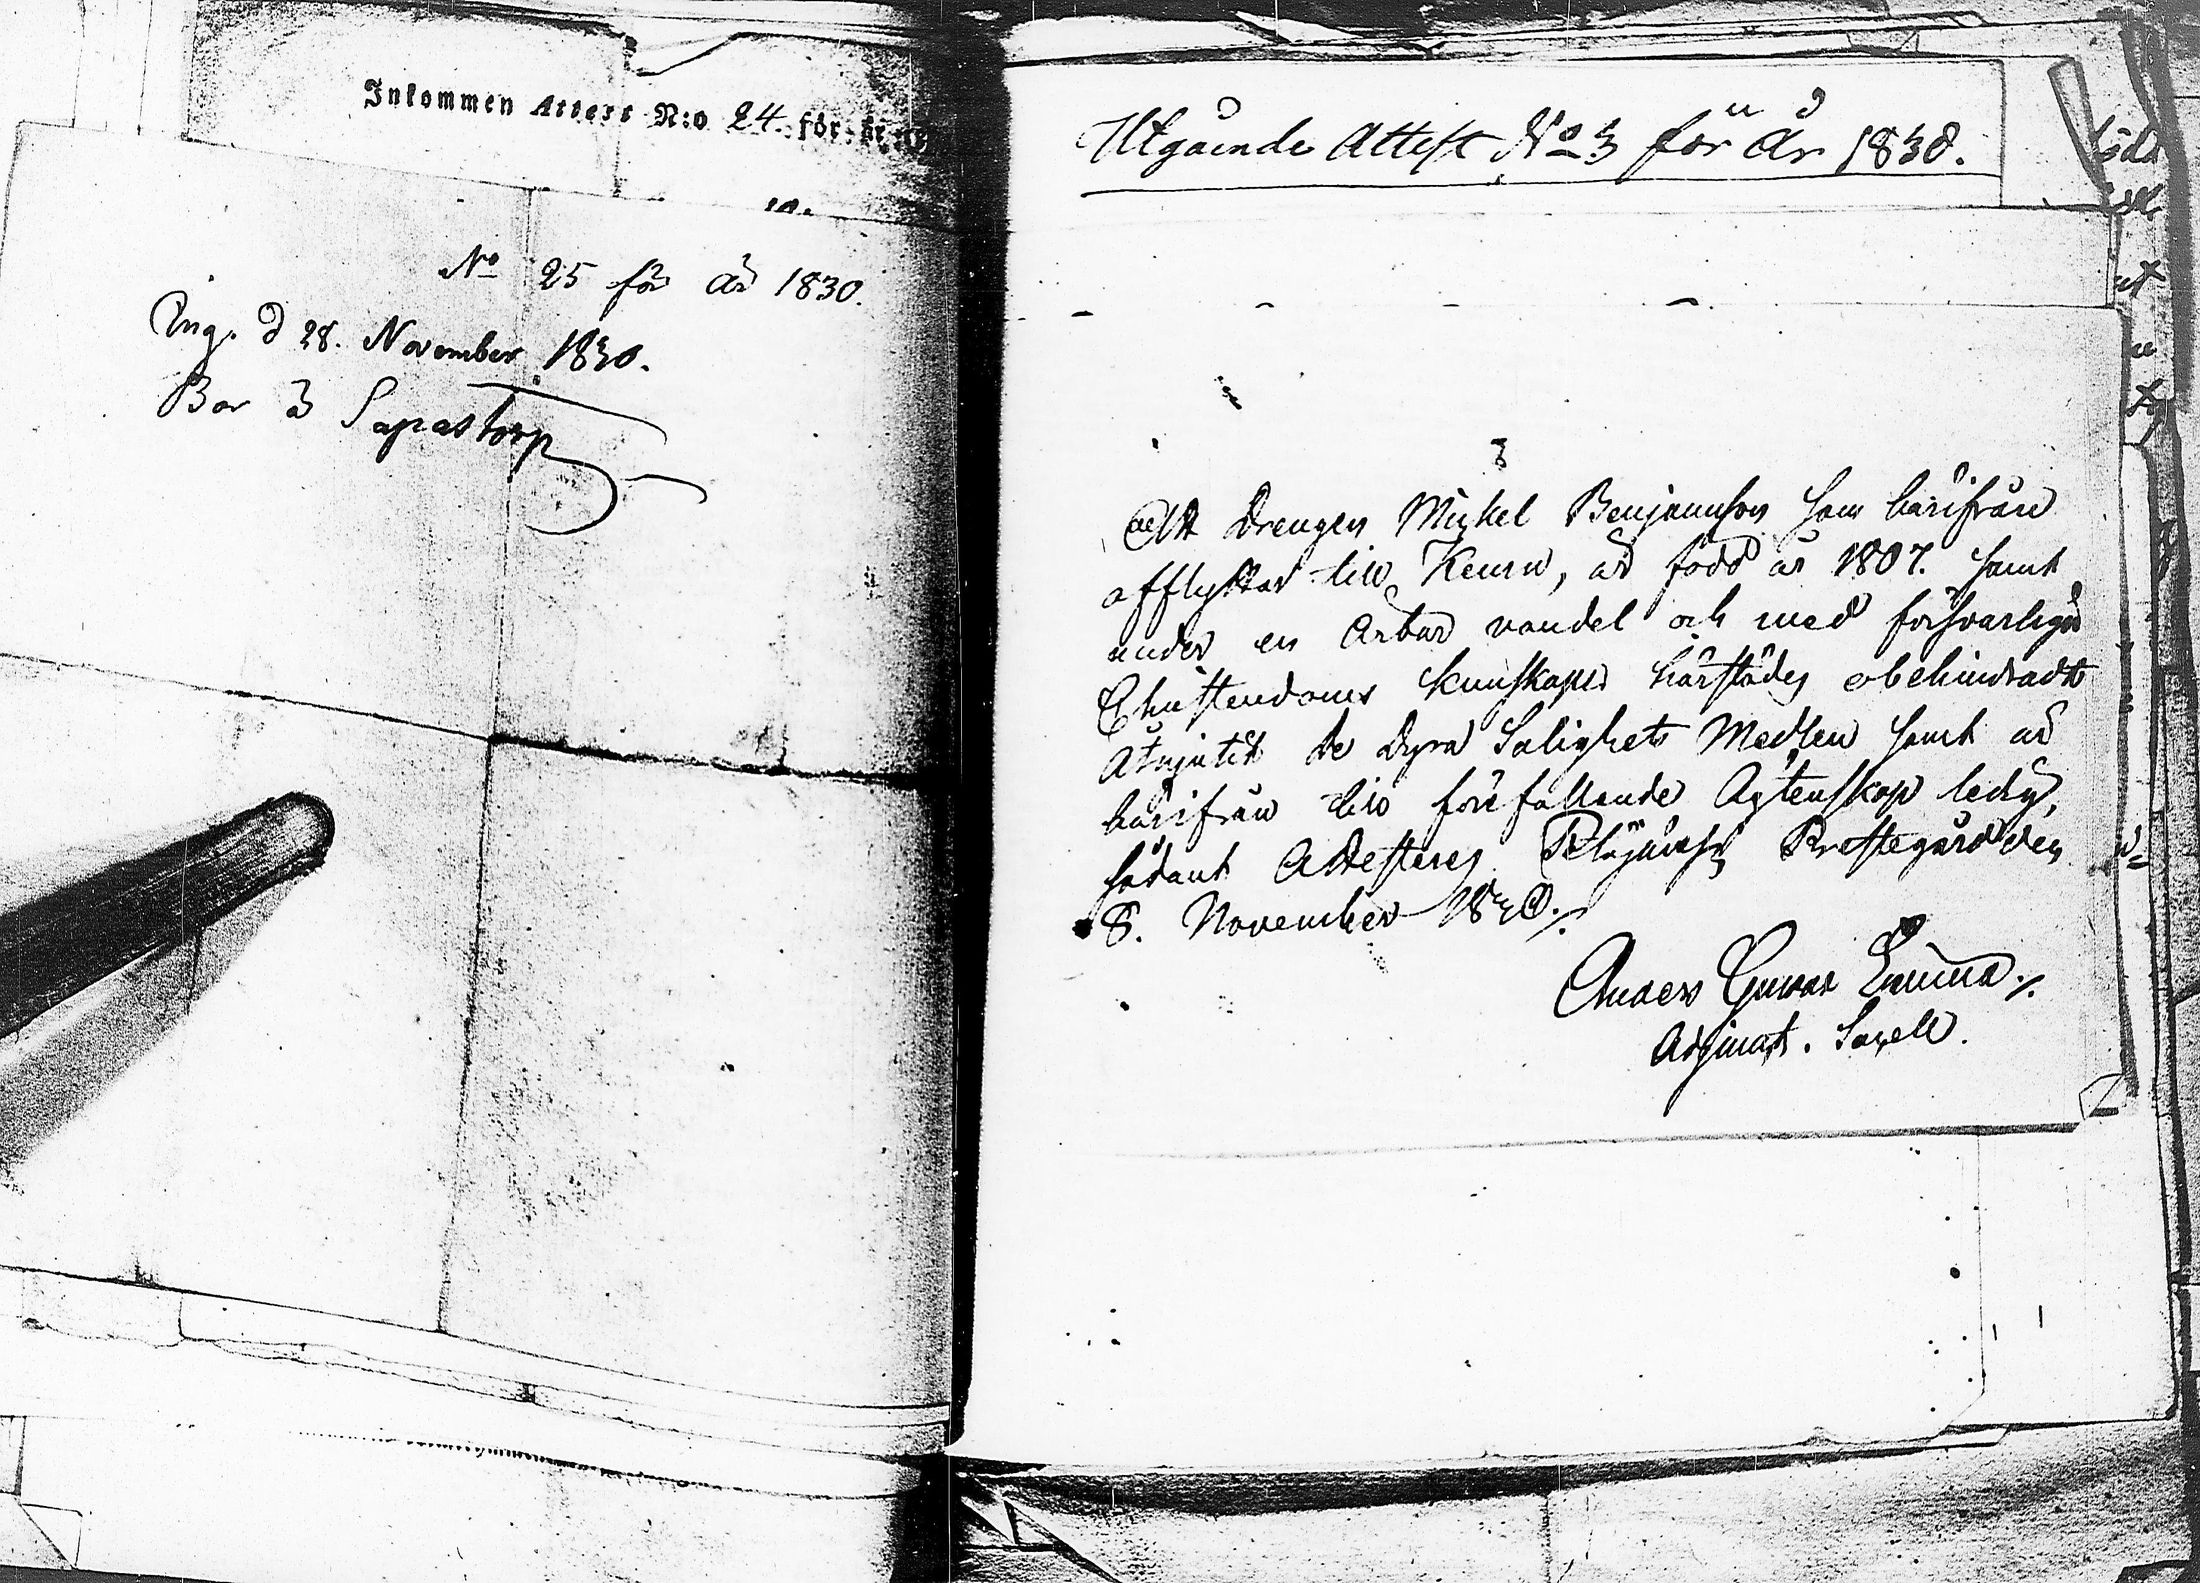 Inkommen Attest N:o 24. för år
No 25 för år 1830.
Ing. d 28. November 1830.
Bor å Sapastorp
Utgående Attest No 3 för År 1830.
Att Drengen Mickel Benjaminson som härifrån
afflyttar till Kemu, är född år 1807. samt
under en ärbar vandel och med försvarliga
Christendoms kunskaper härstädes obehindradt
åtnjutit de dyra Salighets Medlen samt är
härifrån till förefallande Ägtenskap ledig,
sådant Attesteras Prestegård den
8. November 1830.
Anders Gunnar
Adjunct.